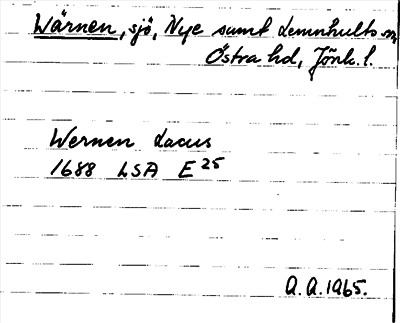 Wärnen, sjö, Nye samt Lemnhults sn
Östra hd, Jönk. l.
Wernen Lacus
1688 LSA E 25
A.A. 1965.